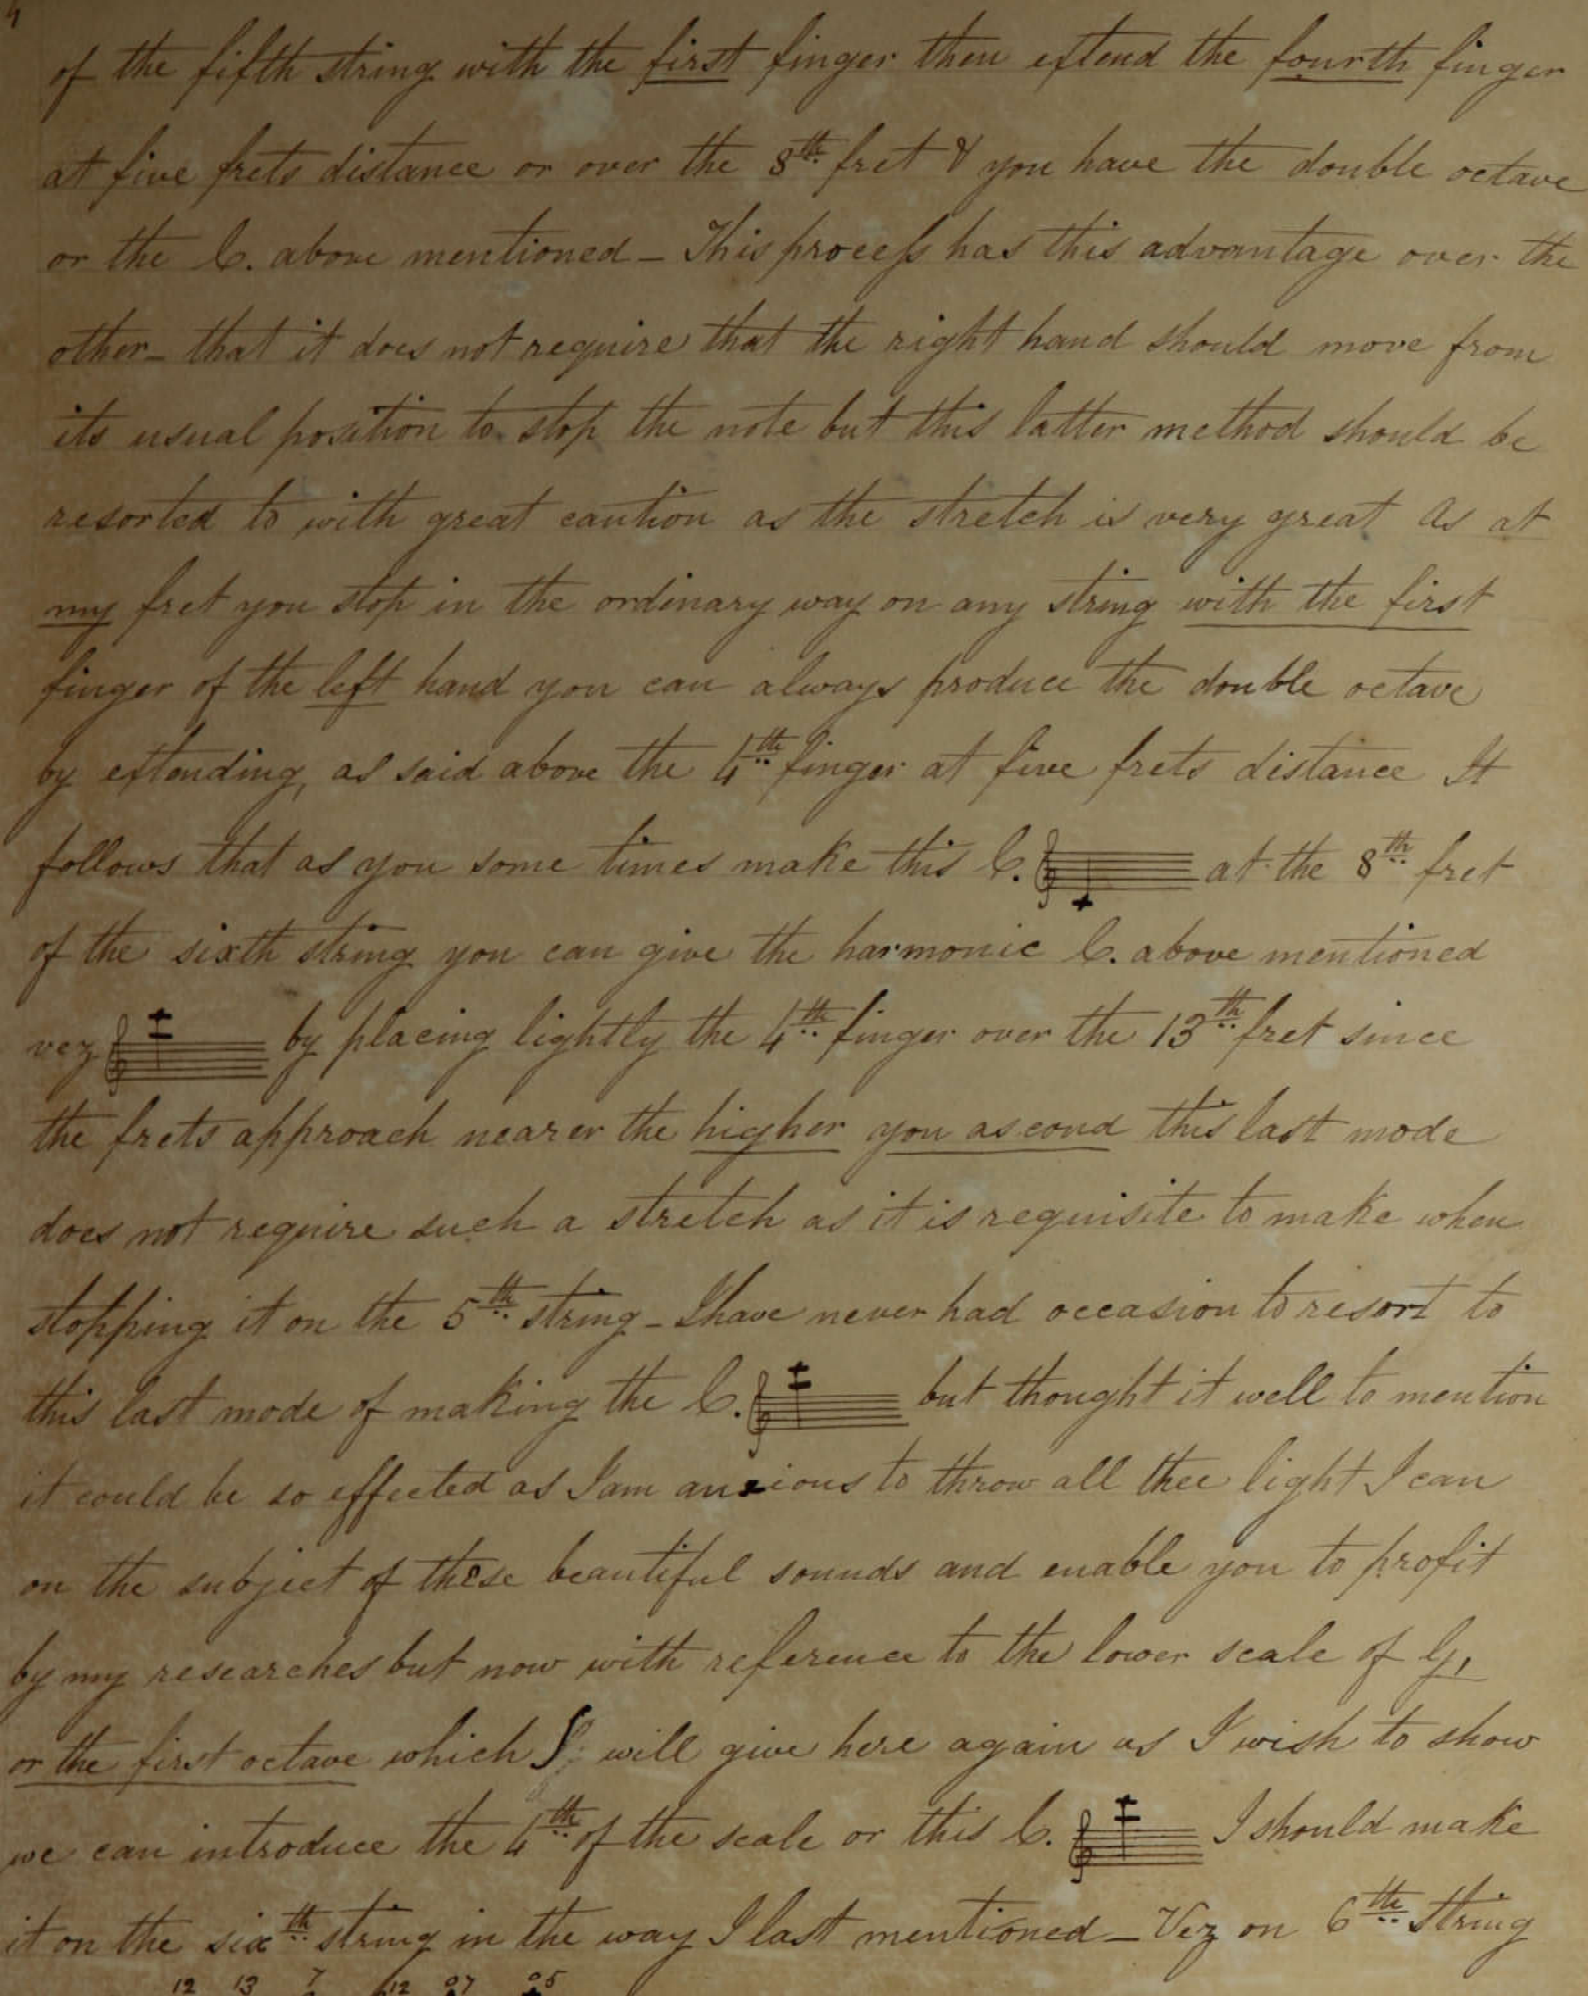 4
of the fifth string with the first finger then extend the fourth finger
at five frets distance or over the 8th fret & you have the double octave
or the C. above mentioned – This process has this advantage over the
other – that it does not require that the right hand should move from
its usual position to stop the note but this latter method should be
resorted to with great caution as the stretch is very great As at
my fret you stop in the ordinary way on any string with the first
finger of the left hand you can always produce the double octave
by extending, as said above the 4th finger at five frets distance It
follows that as you some times make this C. at the 8th fret
of the sixth string you can give the harmonic C. above mentioned
vez by placing lightly the 4th finger over the 13th fret since
the frets approach nearer the higher you ascend this last mode
does not require such a stretch as it is requisite to make when
stopping it on the 5th string – I have never had occasion to resort to
this last mode of making the C. but thought it well to mention
it could be so effected as I am anxious to throw all thee light I can
on the subject of these beautiful sounds and enable you to profit
by my researches but now with reference to the lower scale of G,
or the first octave which I will give here again as I wish to show
we can introduce the 4th of the scale or this C. I should make
it on the sixth string in the way I last mentioned – Vez on 6th string
12 13 7 12 07 05